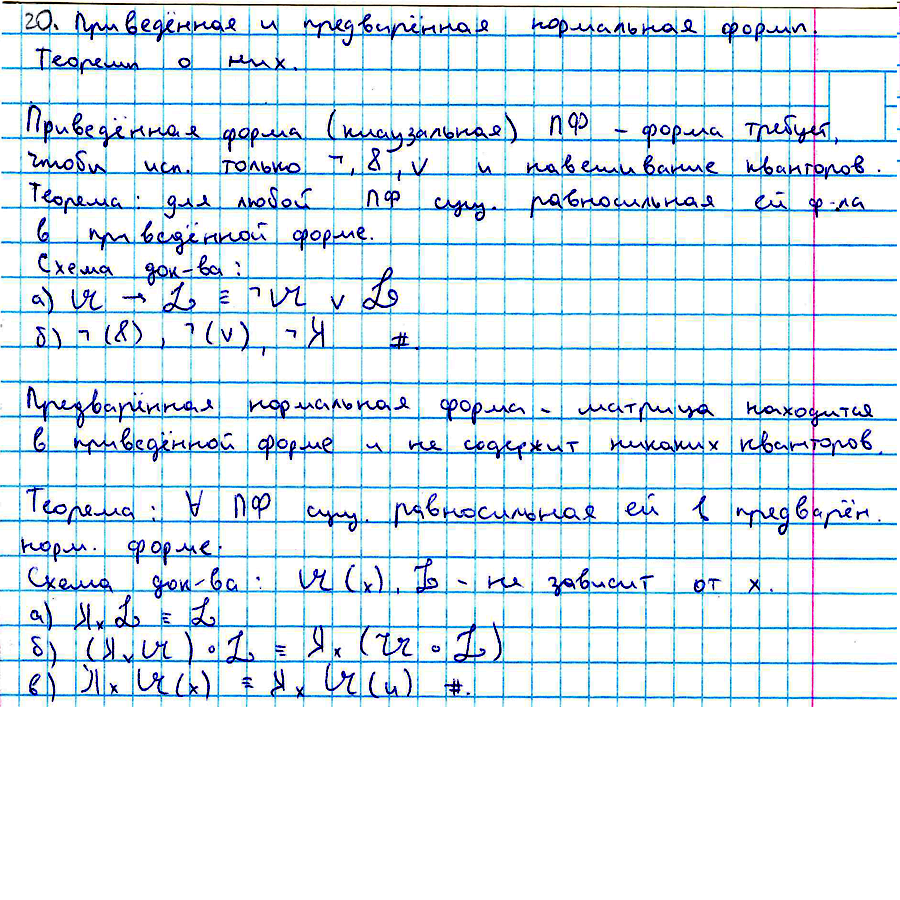 20. Приведённая и предварённая нормальная формы.
Теоремы о них.
Приведённая форма (клаузальная) ПФ – форма требует,
чтобы исп. только ¬, &, ∨ и навешивание кванторов.
Теорема: для любой ПФ сущ. равносильная ей ф-ла
в приведённой форме.
Схема док-ва:
а) 𝔄 → 𝔏 ≡ ¬𝔄 ∨ 𝔏
б) ¬(&), ¬(∨), ¬ К #.
Предварённая нормальная форма – матрица находится
в приведённой форме и не содержит никаких кванторов.
Теорема: ∀ ПФ сущ. равносильная ей в предварён.
норм. форме.
Схема док-ва: 𝔄(x), 𝔏 – не зависит от x.
а) Кₓ 𝔏 ≡ 𝔏
б) (Кₓ 𝔄) ∘ 𝔏 ≡ Кₓ (𝔄 ∘ 𝔏)
в) Кₓ 𝔄(x) ≡ Кₓ 𝔄(u) #.